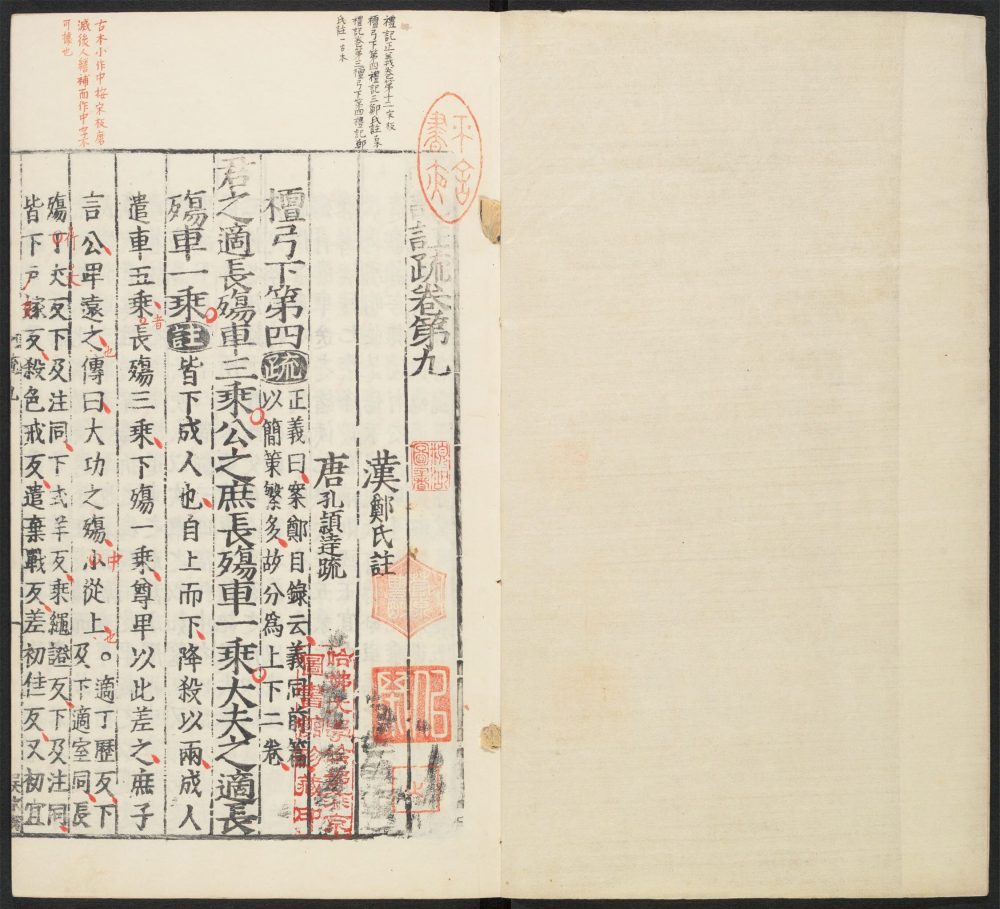 禮記正義卷第十二宋板
檀弓下第四禮記三鄭氏註
禮記卷第三檀弓下第四禮記鄭
氏註一古本
古本小作中按宋板磨
滅後人繕補而作中字不
可據也
註疏卷第九
漢鄭氏註
唐孔穎達疏
檀弓下第四疏正義曰案鄭目錄云義同前篇
以簡策繁多故分為上下二卷
君之適長殤車三乘公之庶長殤車一乘大夫之適長
殤車一乘註皆下成人也自上而下降殺以兩成人
遣車五乘長殤三乘下殤一乘尊卑以此差之庶子
者
言公卑遠之傳曰大功之殤小從上。適丁歷反下及下適室同長
也
中
也
殤丁丈反下及注同下式羊反乘繩證反下及注同
皆下戶嫁反殺色戒反遣棄戰反差初佳反又初宜
哈佛大學
圖書館珍藏印